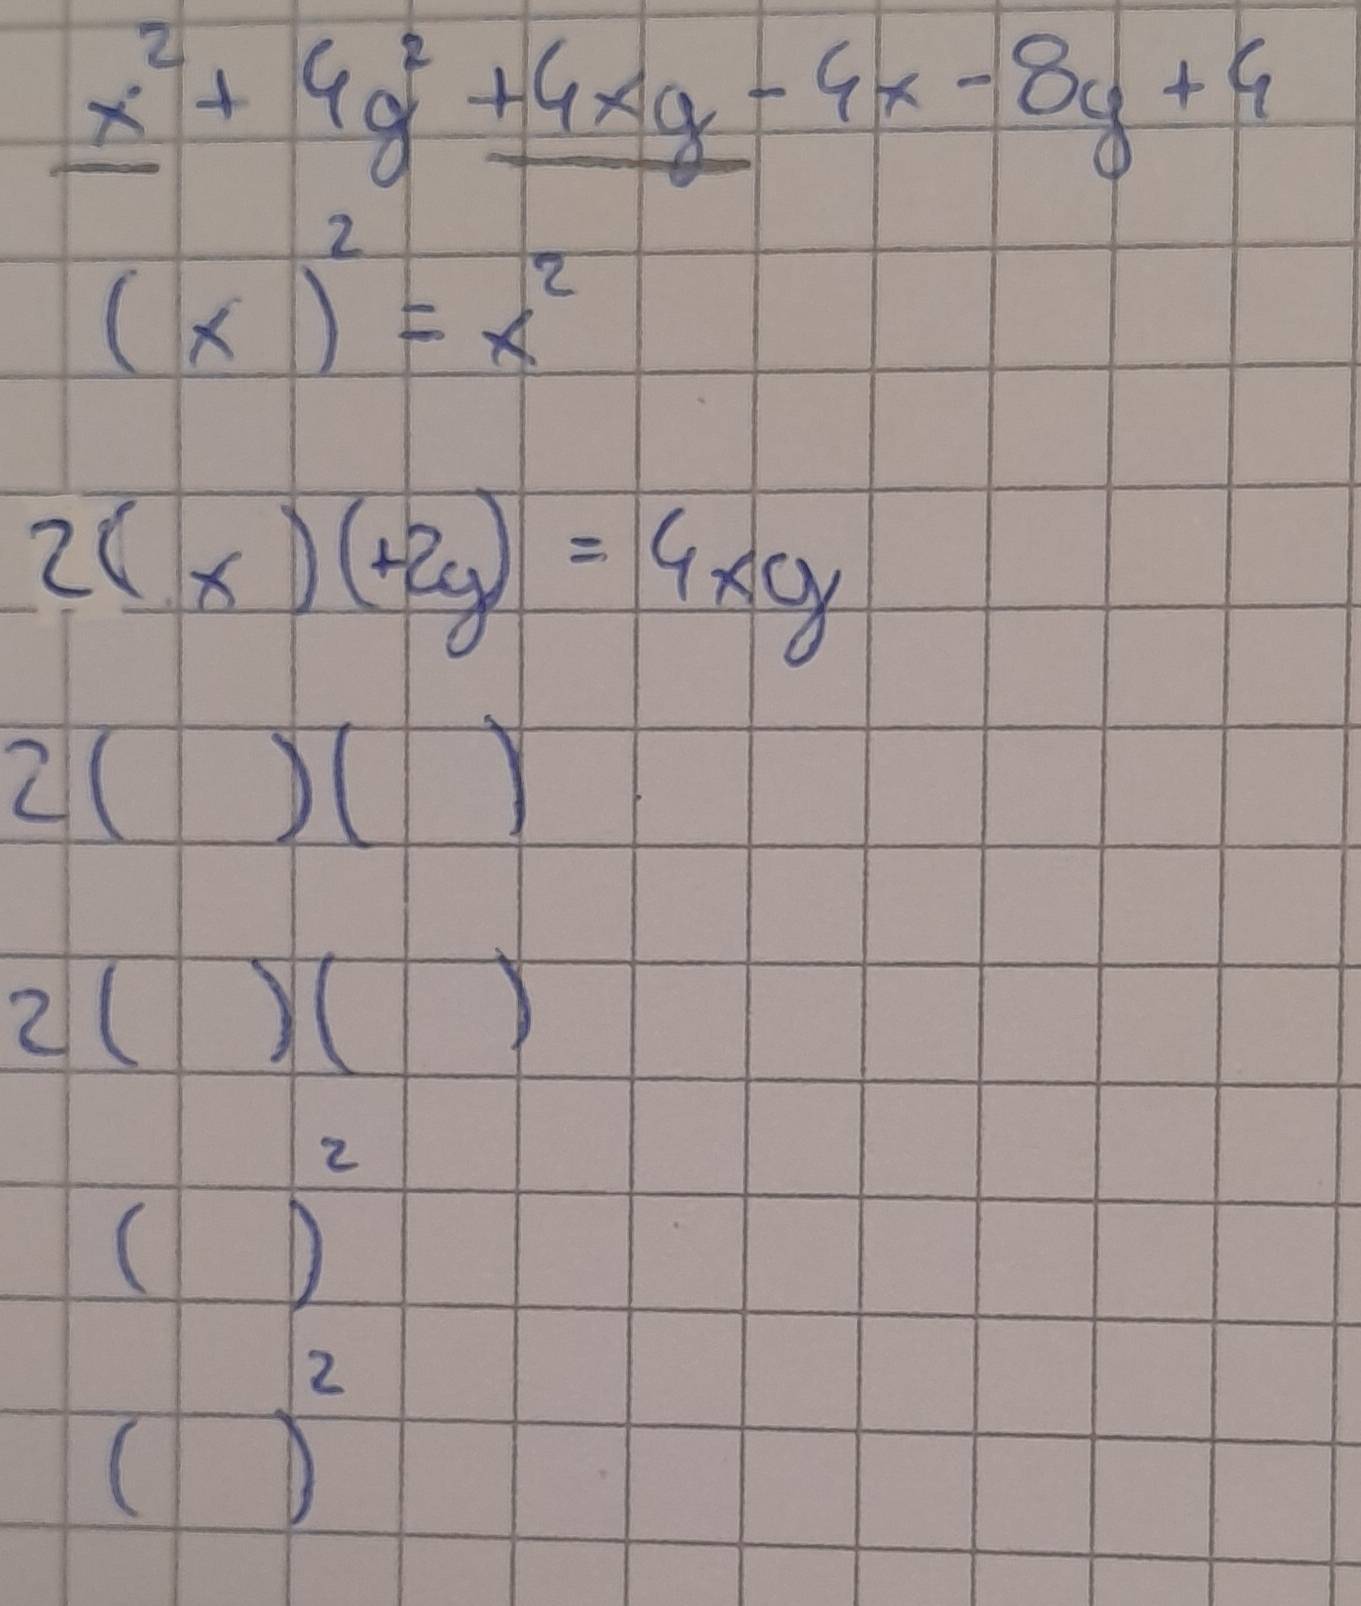 x² + 4y² + 4xy - 4x - 8y + 4
( x )² = x²
2( x )(+2y) = 4xy
2( )( )
2( )( )
( )²
( )²